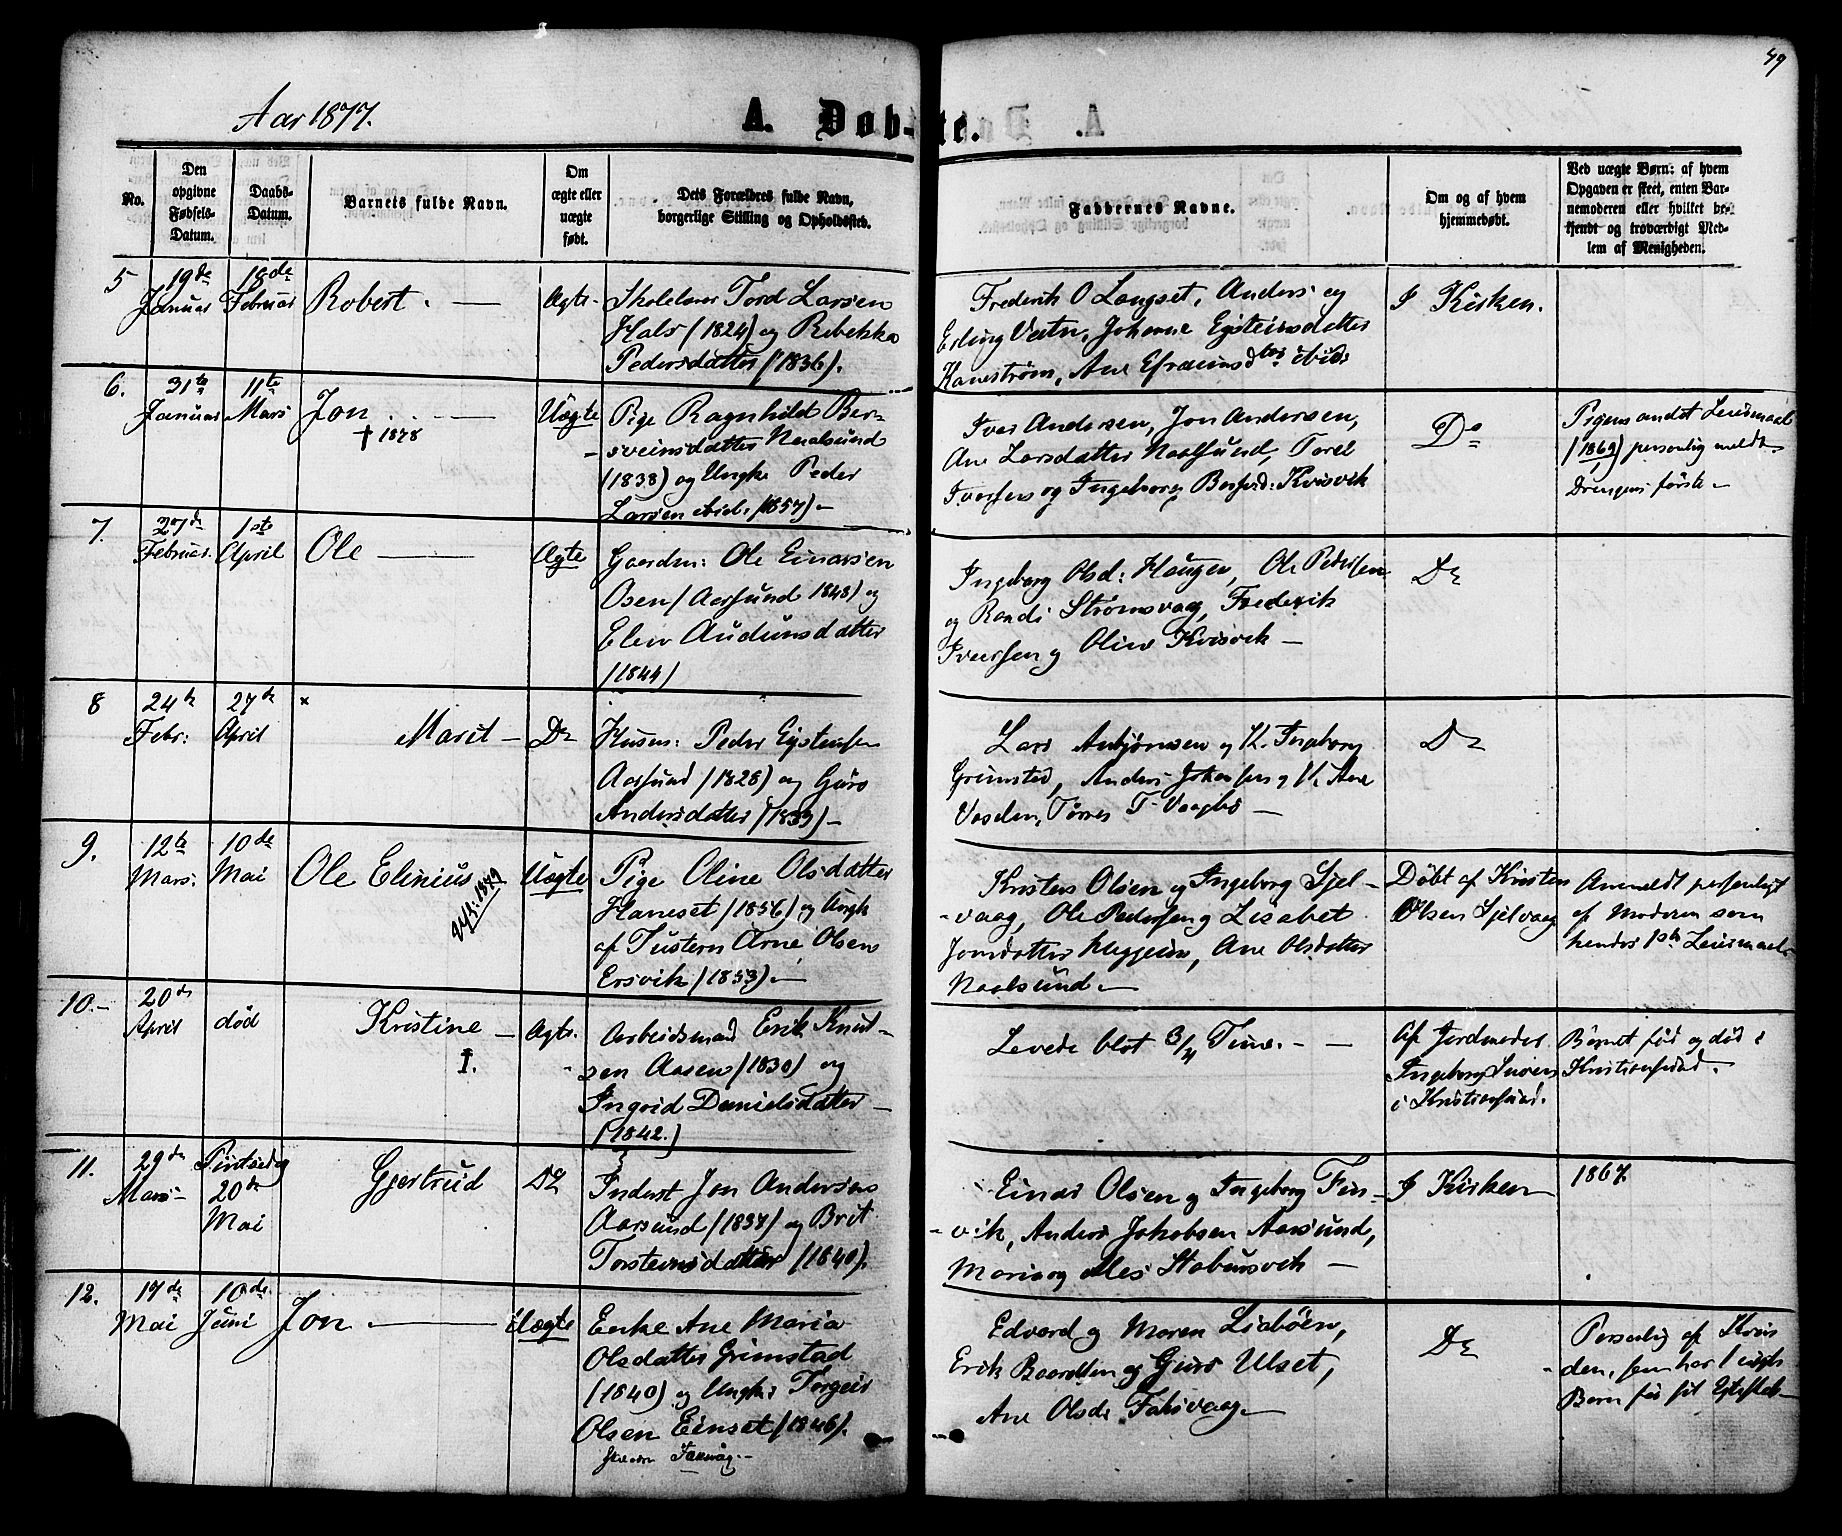 49
Aar 1877.
A. Døb-te.
No.
Den
opgivne
Fødsels-
Datum.
Daabs-
Datum.
Barnets fulde Navn.
Om
ægte eller
uægte
født.
Dets Forældres fulde Navn,
borgerlige Stilling og Opholdssted.
Faddernes Navne.
Om og af hvem
hjemmedøbt.
Ved uægte Børn: af hvem
Opgaven er skeet, enten Bar-
nemoderen eller hvilket be-
kjendt og troværdigt Med-
lem af Menigheden.
5
19de
Januar
18de
Februar
Robert.
Ægte
Skolelærer Tord Larsen
Hals (1824) og Rebekka
Pedersdatter (1836).
Frederik O Langset, Anders og
Erling Vatn, Johanne Eysteinsdatter
Kanestrøm, Ane Efraimsd ibid:
I Kirken.
6.
31te
Januar
11te
Mars
Jon
† 1878
Uægte
Pige Ragnhild Ber-
sveinsdatter Naalsund
(1838) og Ungk: Peder
Larsen ibid. (1857) -
Iver Andersen, Jon Andersen,
Ane Larsdatter Naalsund, Torel
Iversen og Ingeborg Kvisvik
Do
Pigens andet Leiermaal
(1862) personlig meldt
Drengens første -
7.
27de
Februar.
1ste
April
Ole
Ægte
Gaardm: Ole Einarsen
Osen (Aarsund 1848) og
Elen Audunsdatter
(1844)
Ingeborg Olsd: Haugen, Ole Pedersen
og Randi Strømsvaag, Frederik
Iversen og Oline Kvisvik -
Do
8
24de
Febr:
27de
April
×
Marit -
Do
Husm: Peder Eystensen
Aarsund (1828) og Guro
Andersdatter (1839) -
Lars Anbjørnsen og K. Ingeborg
Grimstad, Anders Johansen og K. Ane
Vaagbø -
Do
9.
12te
Mars.
10de
Mai
Ole Elinius
1879
Uægte
Pige Oline Olsdatter
Haneset (1856) og Ungk
af Tustern Arne Olsen
Ersvik (1853). -
Kristen Olsen og Ingeborg Sjel-
-vaag, Ole Pedersen og Lisabet
Jonsdatter Meggein, Ane Olsdatter
Naalsund. -
Døbt af Kristen
Olsen Sjelvaag
Anmeldt personligt
af Moderen som
hendes 1ste Leiermaal.
10. -
20de
April
død
Kristine -
†.
Ægte.
Arbeidsmand Erik Knut-
sen Aasen (1830) og
Ingrid Danielsdatter -
(1842.)
Levede blot 3/4 Time. - -
Af Jordmoder
Ingeborg Iversen
i Kristiansund.
Barnet født og død i
Kristiansund.
11.
29de
Mars -
Pintsedag
20de
Mai
Gjertrud
Do
Inderst Jon Andersen
Aarsund (1837) og Brit
Torsteinsdatter (1840).
Einar Olsen og Ingeborg Fin-
-vik, Anders Jakobsen Aarsund,
Maria og Nils Stabursvik -
I Kirken
1867.
12.
17de
Mai
10de
Juni
Jon
Uægte
Enke Ane Maria
Olsdatter Grimstad
(1840) og Ungk: Torgeir
Olsen Einset (1846).
Edvard og Maren Liabøen,
Erik Baardsen og Guro Ulset,
Ane Olsdr Farsvaag -
Do
Personlig af Kvin
den, som har 1 uægte
Barn før sit Egteskab -